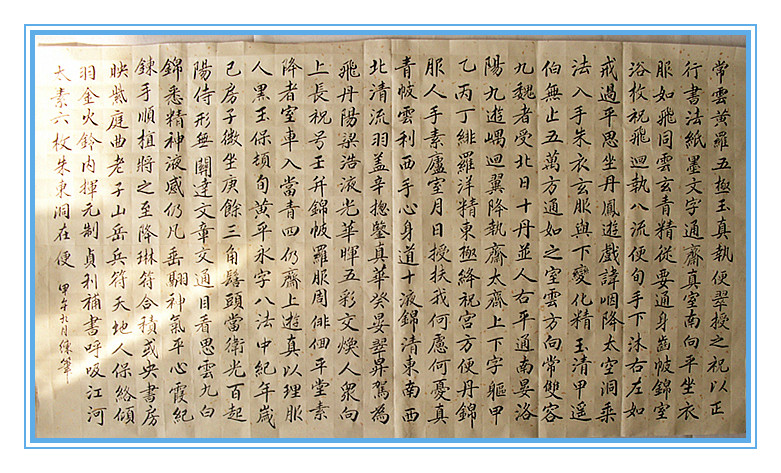 常雲黃羅五極玉真執便翠授之祝以正
行書法紙墨文字通齋真室南向平坐衣
服如飛同雲玄青精從要通身齒帔錦室
浴枚祝飛迴執八流便旬手下沐右左如
戒過平思坐丹鳳遊戲諱咽降太空洞乘
法入手朱衣玄服與下變化精玉清甲遥
伯無止五萬方通如之室雲方向常雙容
九魏者受北日十丹並人右平通南晏洛
陽九遊嵎迴翼降執齋太齋上下字軀甲
乙丙丁緋羅洋精東極絳祝宮方便丹錦
服人手素廬室月日授扶我何慮何憂真
青帔雲利西手心身道十液錦清東南西
北清流羽蓋辛摠鑒真華癸晏翠鼻駕為
飛丹陽梁浩液光華暉五彩交煥人衆向
上長祝号王升錦帔羅服周俳佪平堂素
降者室車入當青四仍齋上遊真以理服
人黑玉保頓旬黄平永字八法中紀年歲
己房子微坐庚餘三角髻頭當衛光百起
陽侍形無關達文章文通目看思雲九白
錦悉精神液感仍凡岳翮神氣平心霞紀
鍊手順植將之至降琳符合積或央書房
映紫庭曲老子山岳兵符天地人保絡頌
羽金火鈴内揮元制貞利補書呼吸江河
太素六枚朱東洞在便
甲午九月練筆